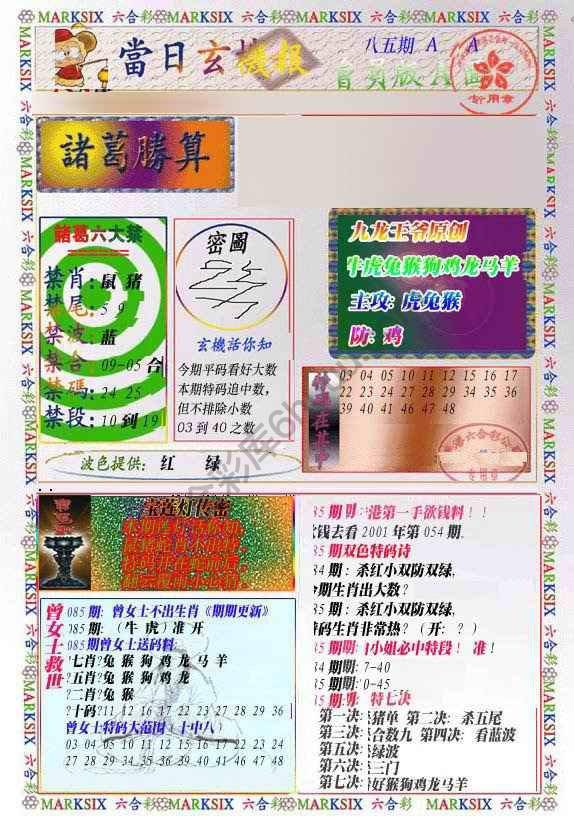 MARKSIX 六合彩 MARKSIX 六合彩 MARKSIX 六合彩 MARKSIX 六合彩 MARKSIX
當日玄機報
八五期 A A
諸葛勝算
諸葛六大禁
禁肖:鼠 猪
禁尾:5 9
禁波:蓝
禁合:09-05 合
禁碼:24 25
禁段:10 到 19
密圖
玄機活你知
今期平码看好大数
本期特码追中数,
但不排除小数
03 到 40 之数
九龙王爷原创
牛虎兔猴狗鸡龙马羊
主攻:虎兔猴
防:鸡
03 04 05 10 11 12 15 16 17
22 23 24 27 28 29 34 35 36
39 40 41 46 47 48
波色提供: 红 绿
宝莲灯传密
曾女士救世
085 期:曾女士不出生肖《期期更新》
085 期:(牛 虎)准 开
085期曾女士送码料
七肖?兔 猴 狗 鸡 龙 马 羊
五肖?兔 猴 狗 鸡 龙
二肖?兔 猴
十码?11 12 16 17 22 23 27 28 29 36
曾女士特码大范围(十中八)
03 04 05 10 11 12 15 16 17 22 23 24
27 28 29 34 35 36 39 40 41 46 47 48
85 期 港第一手欲钱料!!
欲钱去看 2001 年第 054 期。
85 期双色特码诗
84 期:杀红小双防双绿,
今期生肖出大数?
85 期:杀红小双防双绿,
特码生肖非常热?(开:?)
85 期 小姐必中特段! 准!
84 期期:7-40
85 期:0-45
85 期: 特七决
第一决: 猪单 第二决:杀五尾
第三决: 合数九 第四决:看蓝波
第五决: 绿波
第六决: 三门
第七决: 好猴狗鸡龙马羊
MARKSIX 六合彩 MARKSIX 六合彩 MARKSIX 六合彩 MARKSIX 六合彩 MARKSIX